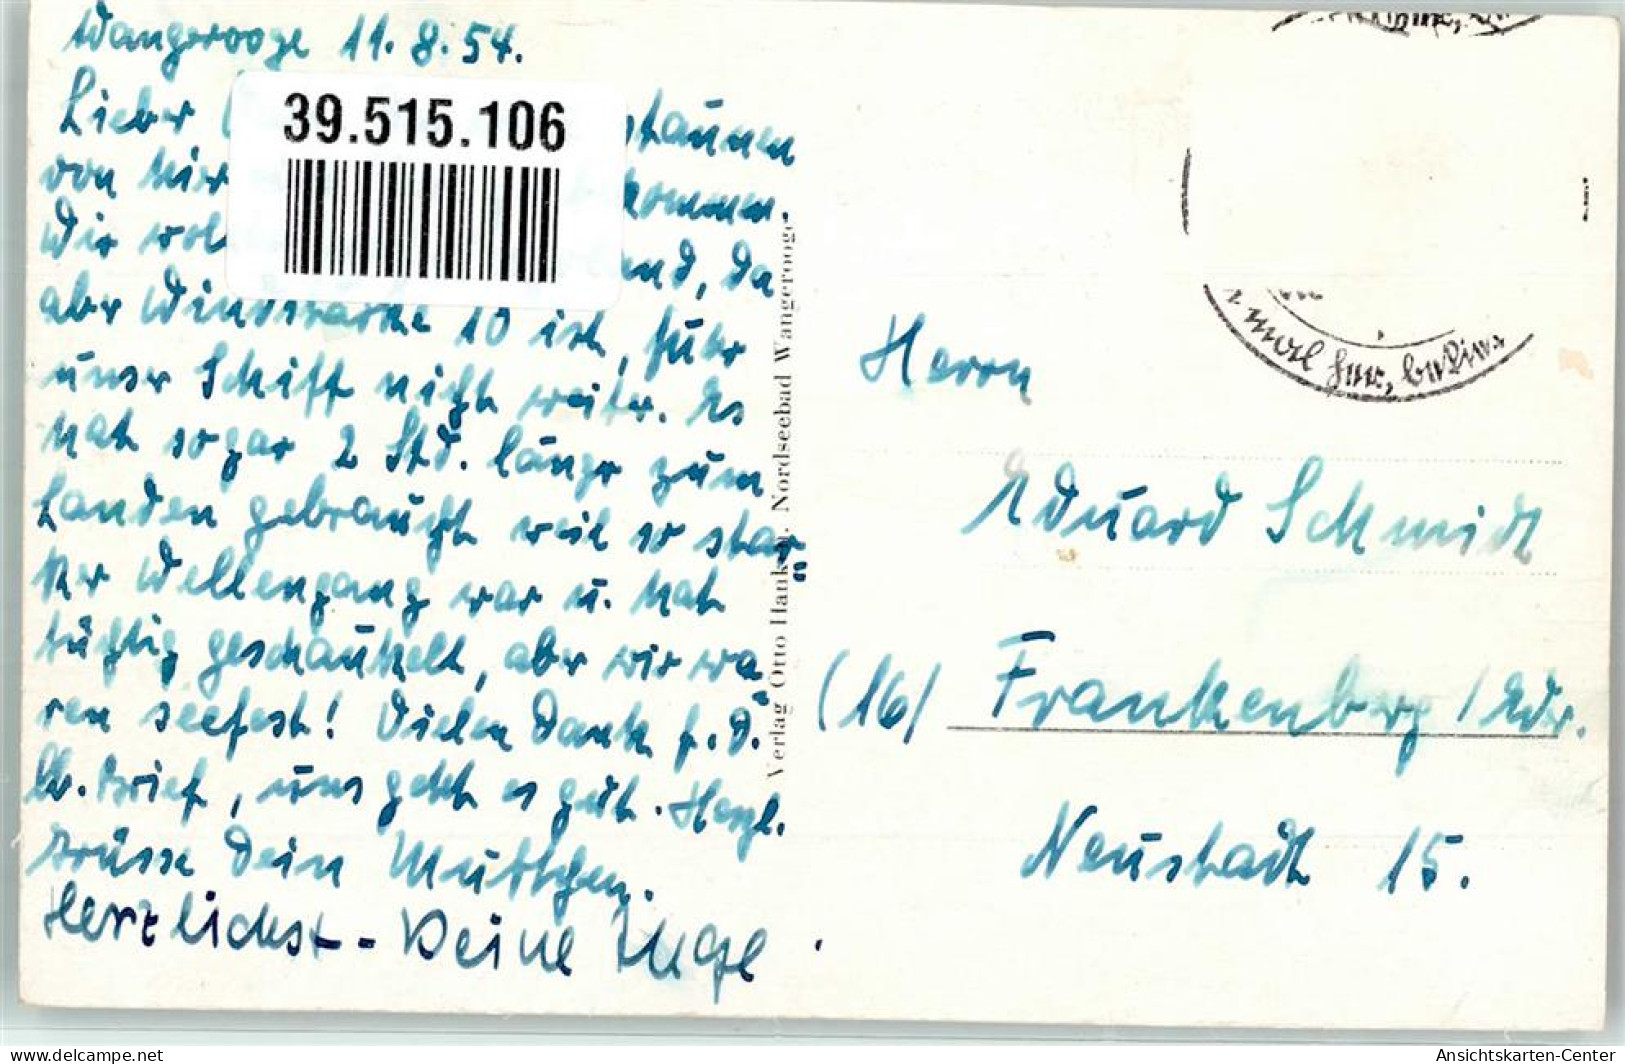 Wangerooge 11.8.54.
Lieber
39.515.106
staunen
von hier
komm.
Wir wol
land, da
aber Windstärke 10 ist, fuhr
unser Schiff nicht weiter. Es
hat sogar 2 Std. länger zum
Landen gebraucht weil so star
ker Wellengang war u. hat
tüchtig geschaukelt, aber wir wa
ren seefest! Vielen Dank f. D.
lb. Brief, uns geht es gut. Herzl.
Grüsse Dein Muttchen.
Herzlichst - Deine Inge
Verlag Otto Hanken, Nordseebad Wangerooge
Herrn
Eduard Schmidt
(16) Frankenberg / Eder.
Neustadt 15.
Ansichtskarten-Center
www.delcampe.net